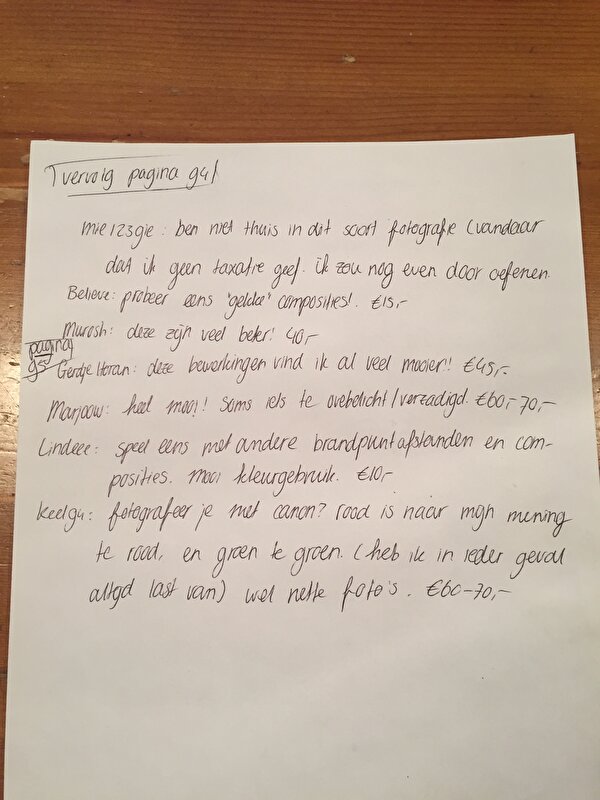 vervolg pagina 94
Mie123gie: ben niet thuis in dit soort fotografie (vandaar
dat ik geen taxatie geef. ik zou nog even door oefenen.
Believe: probeer eens "gekke" composities!. €15,-
Murosh: deze zijn veel beter! 40,-
pagina
95
Gerdje Horan: deze bewerkingen vind ik al veel mooier!! €45,-
Marjoow: heel mooi! Soms iets te overbelicht/verzadigd. €60,-70,-
Lindeee: speel eens met andere brandpuntafstanden en com-
posities. mooi kleurgebruik. €10,-
Keelg4: fotografeer je met canon? rood is naar mijn mening
te rood, en groen te groen. (heb ik in ieder geval
altijd last van) wel nette foto's. €60-70,-